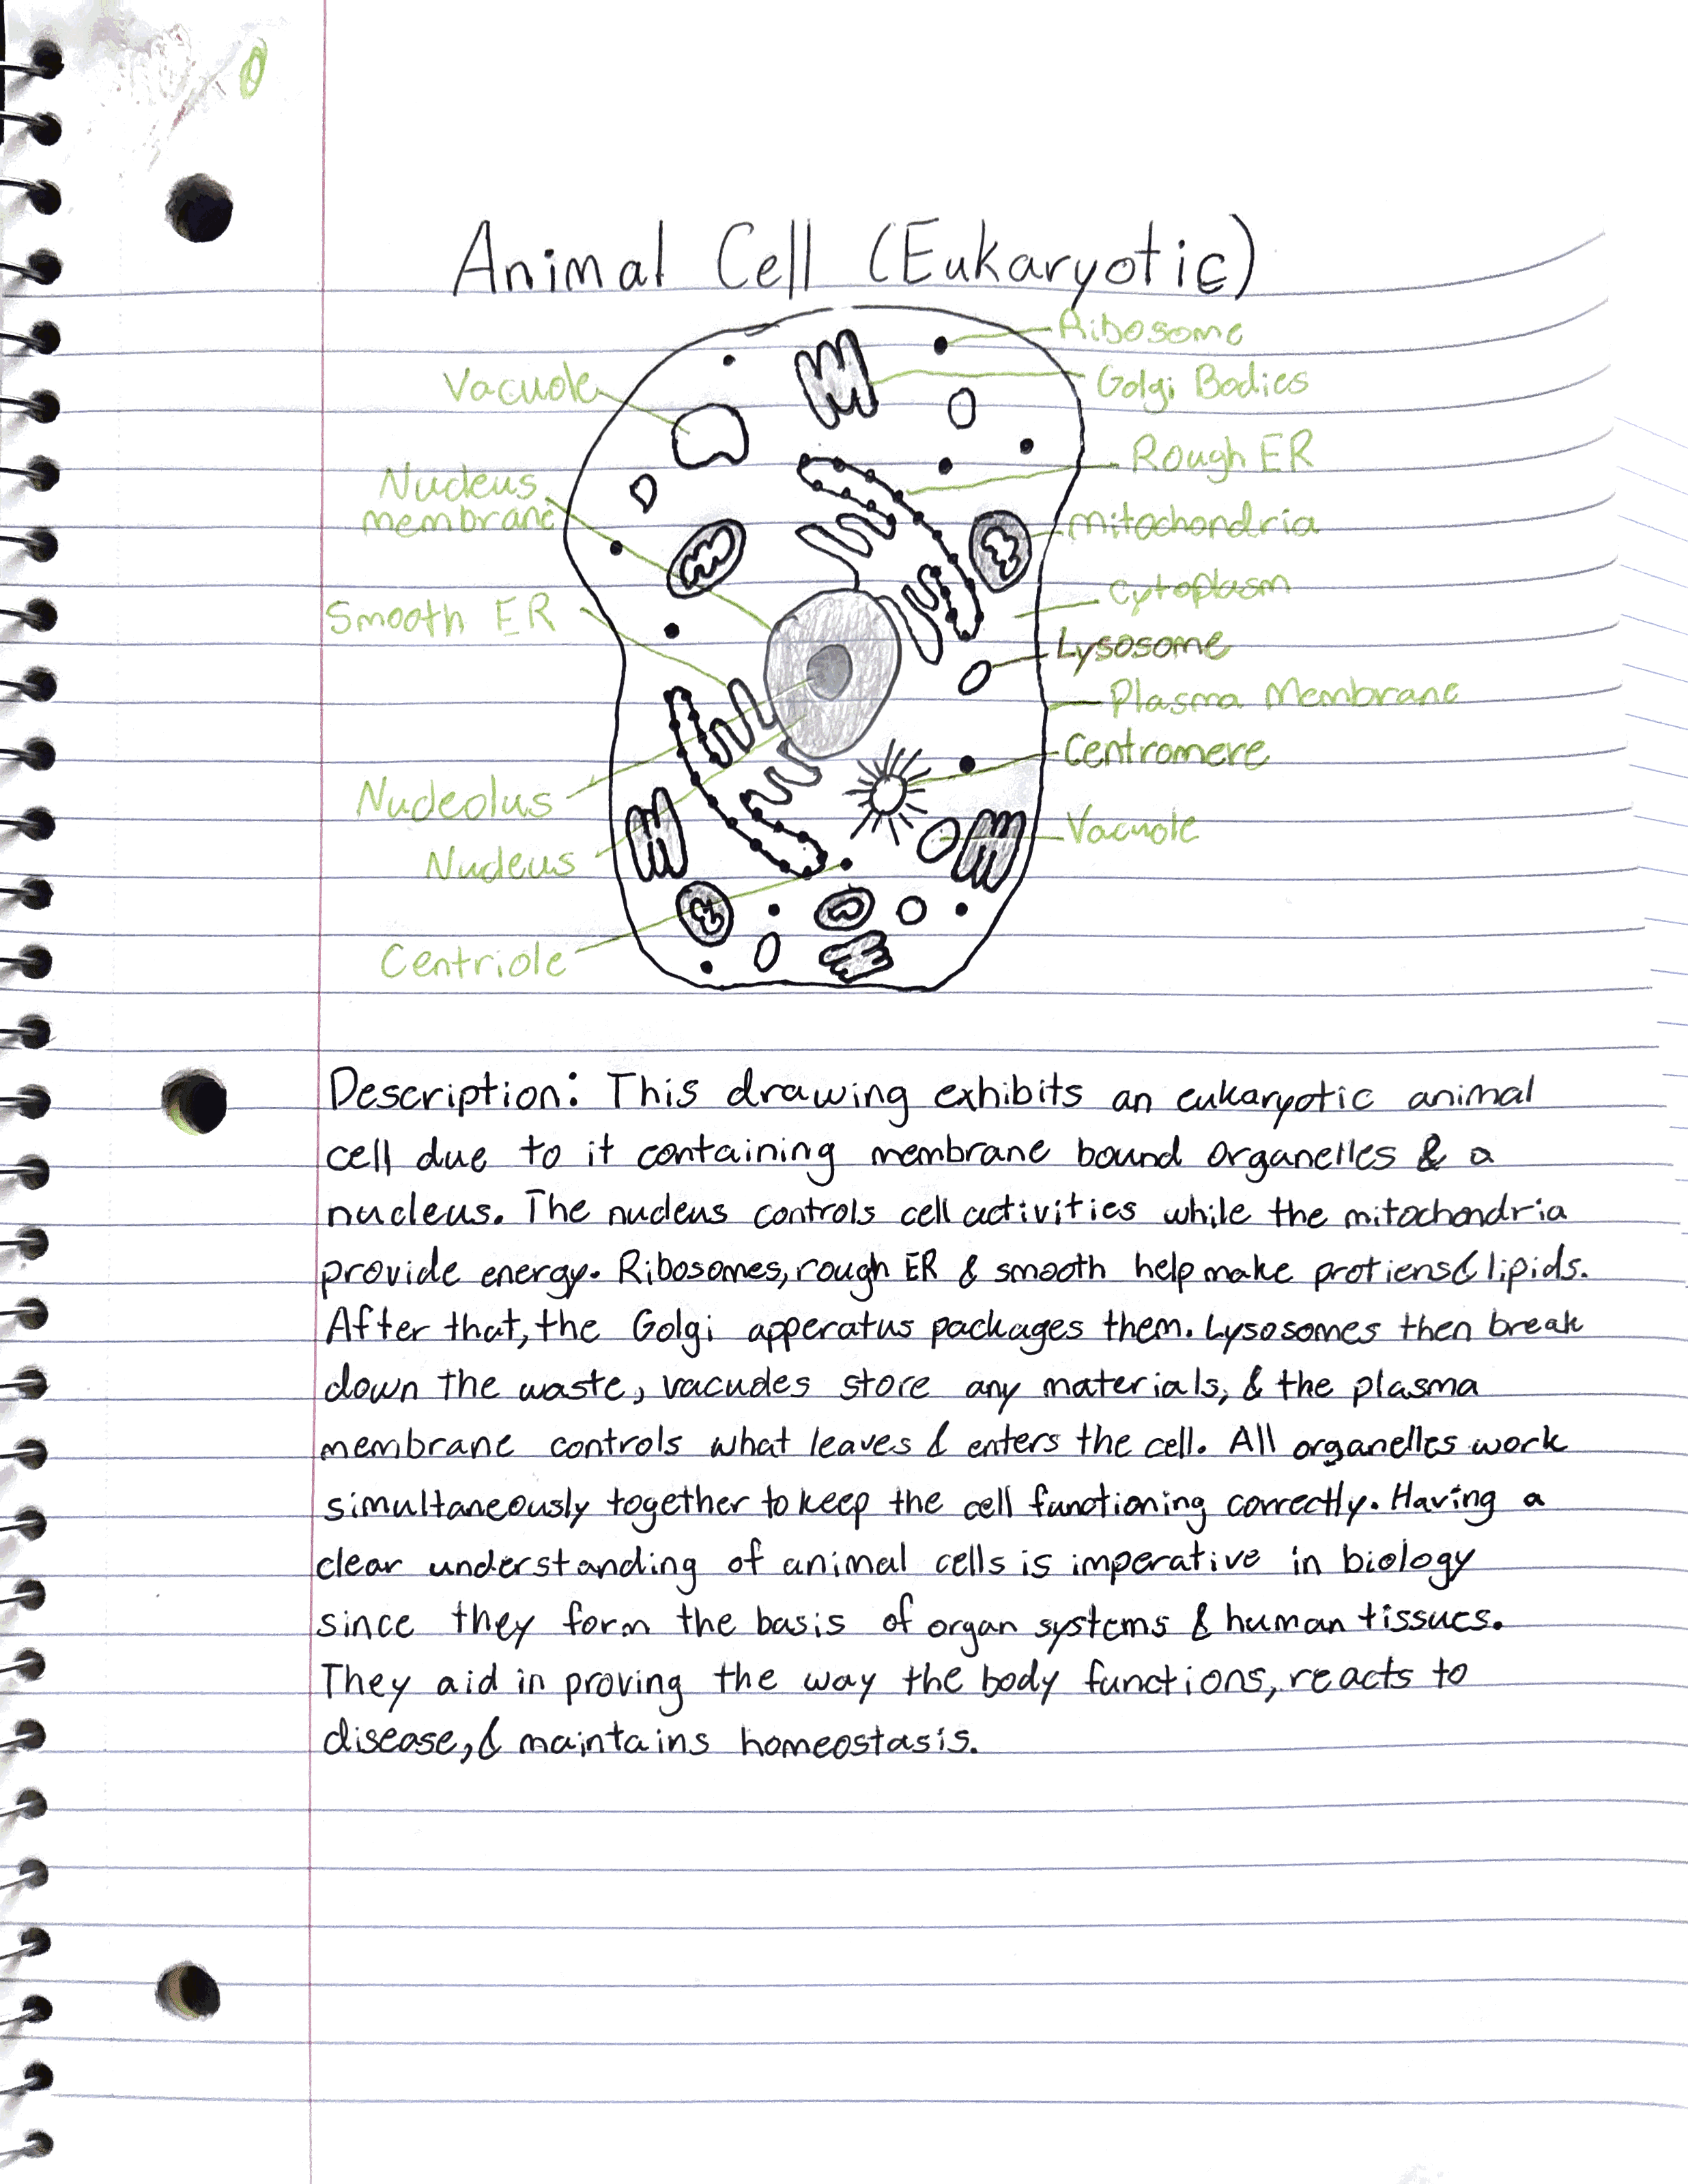 Animal Cell (Eukaryotic)
Ribosome
Vacuole
Golgi Bodies
Rough ER
Nucleus
membrane
mitochondria
cytoplasm
Smooth ER
Lysosome
Plasma Membrane
Centromere
Nucleolus
Vacuole
Nucleus
Centriole
Description: This drawing exhibits an eukaryotic animal
cell due to it containing membrane bound organelles & a
nucleus. The nucleus controls cell activities while the mitochondria
provide energy. Ribosomes, rough ER & smooth help make protiens & lipids.
After that, the Golgi apperatus packages them. Lysosomes then break
down the waste, vacuoles store any materials, & the plasma
membrane controls what leaves & enters the cell. All organelles work
simultaneously together to keep the cell functioning correctly. Having a
clear understanding of animal cells is imperative in biology
since they form the basis of organ systems & human tissues.
They aid in proving the way the body functions, reacts to
disease, & maintains homeostasis.